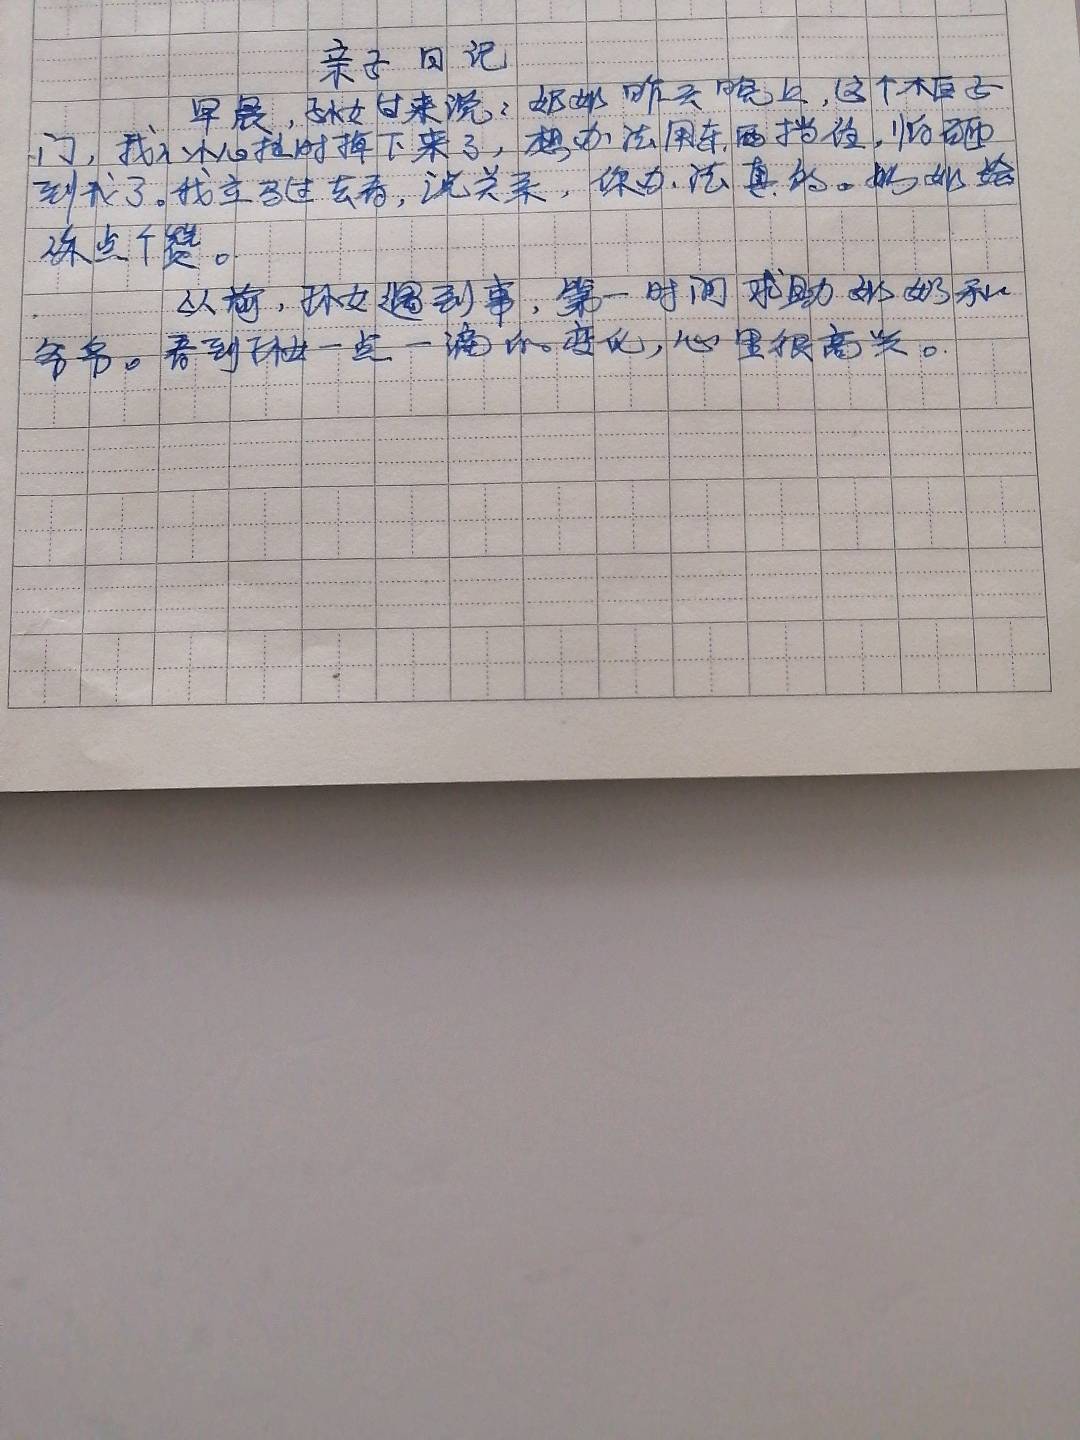 亲子日记
早晨,孙女过来说:奶奶昨天晚上,这个柜子
门,我不小心拉时掉下来了,想办法用东西挡住,怕砸
到我了。我立马过去看,说关系,你办法真的。奶奶给
你点个赞。
从前,孙女遇到事,第一时间求助奶奶和
爷爷。看到孙女一点一滴的变化,心里很高兴。